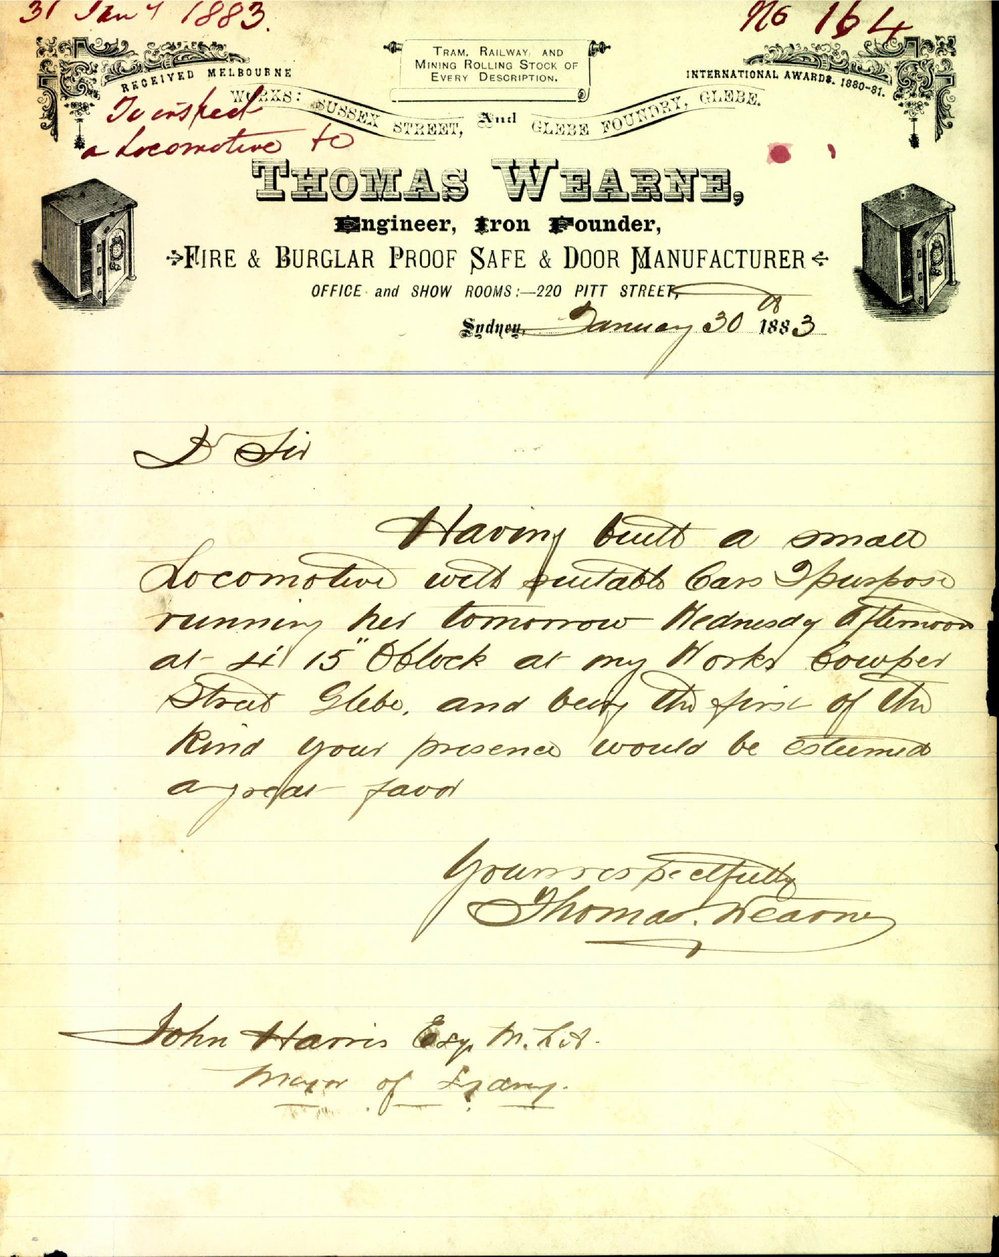 31 Jany 1883.
No 164
TRAM, RAILWAY, AND
MINING ROLLING STOCK OF
EVERY DESCRIPTION.
RECEIVED MELBOURNE
INTERNATIONAL AWARDS. 1880-81.
WORKS: SUSSEX STREET, And GLEBE FOUNDRY, GLEBE.
To inspect
a Locomotive to
THOMAS WEARNE,
Engineer, Iron Founder,
FIRE & BURGLAR PROOF SAFE & DOOR MANUFACTURER
OFFICE and SHOW ROOMS:—220 PITT STREET,
Sydney, January 30th 1883
D Sir
Having built a small
Locomotive with suitable Cars I purpose
running her tomorrow Wednesdy Afternoon
at 4 15" OClock at my Works Cowper
Street Glebe, and being the first of the
Kind your presence would be esteemed
a great favor
Yours respectfully
Thomas. Wearne
John Harris Esq. M.L.A.
Mayor of Sydney.